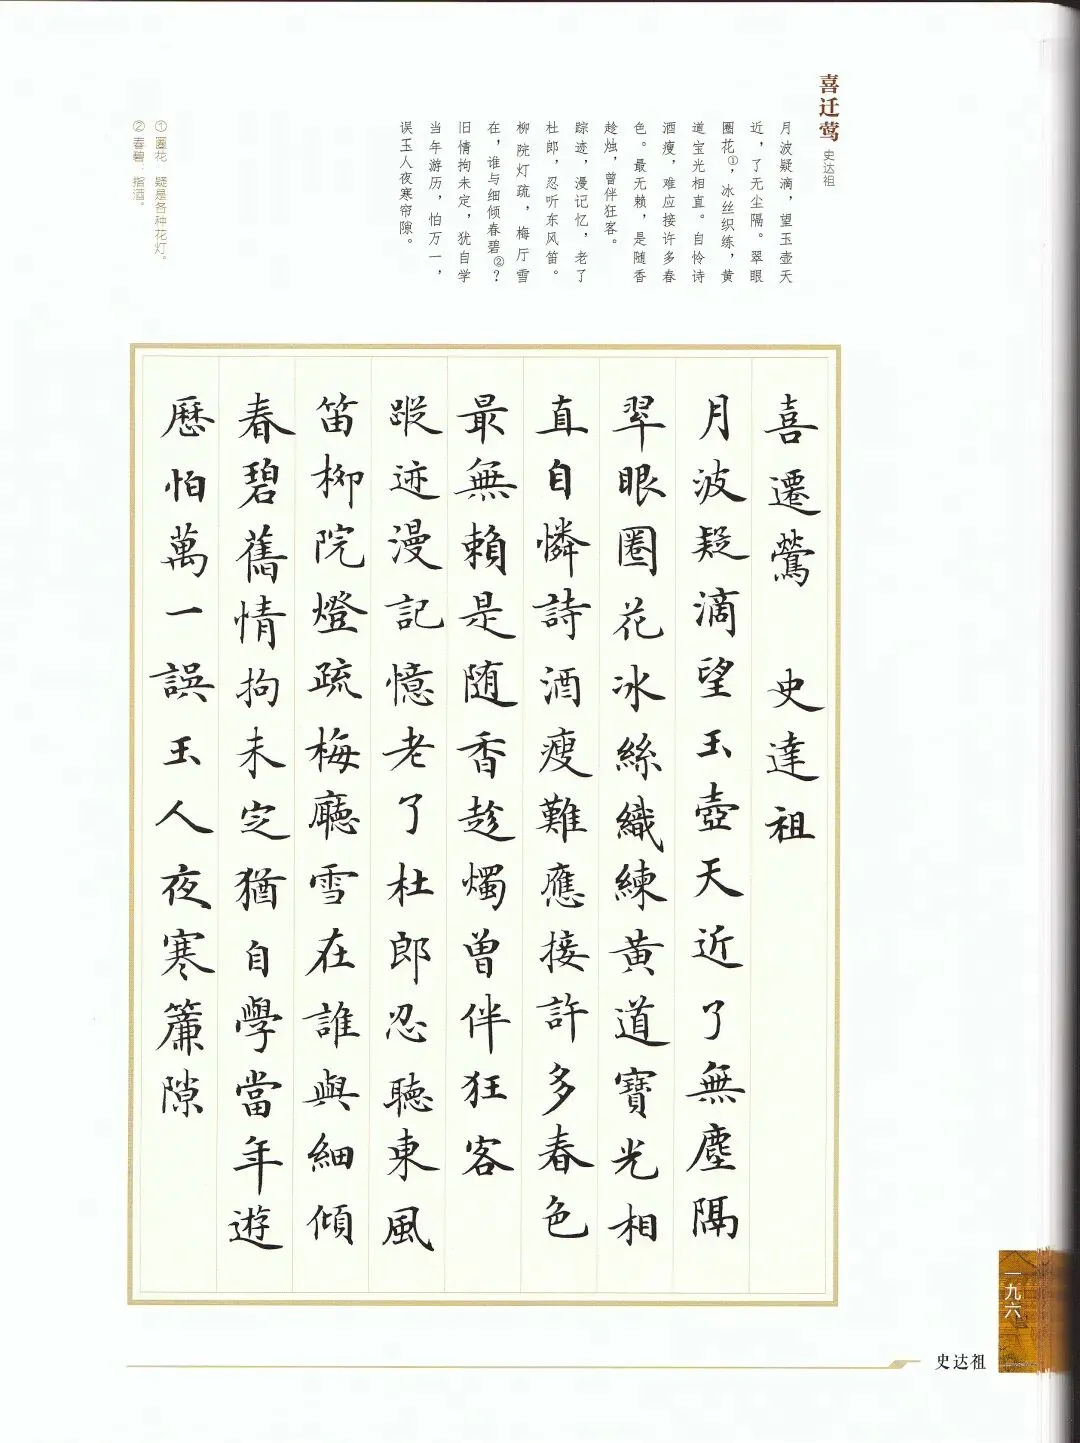 喜迁莺
史达祖
月波疑滴，望玉壶天
近，了无尘隔。翠眼
圈花①，冰丝织练，黄
道宝光相直。自怜诗
酒瘦，难应接许多春
色。最无赖，是随香
趁烛，曾伴狂客。
踪迹，漫记忆，老了
杜郎，忍听东风笛。
柳院灯疏，梅厅雪
在，谁与细倾春碧②？
旧情拘未定，犹自学
当年游历，怕万一，
误玉人夜寒帘隙。
① 圈花：疑是各种花灯。
② 春碧：指酒。
喜遷鶯 史達祖
月波疑滴望玉壺天近了無塵隔
翠眼圈花冰絲織練黃道寶光相
直自憐詩酒瘦難應接許多春色
最無賴是随香趁燭曾伴狂客
蹤迹漫記憶老了杜郎忍聽東風
笛柳院燈疏梅廳雪在誰與細傾
春碧舊情拘未定猶自學當年遊
歷怕萬一誤玉人夜寒簾隙
一九六
史达祖